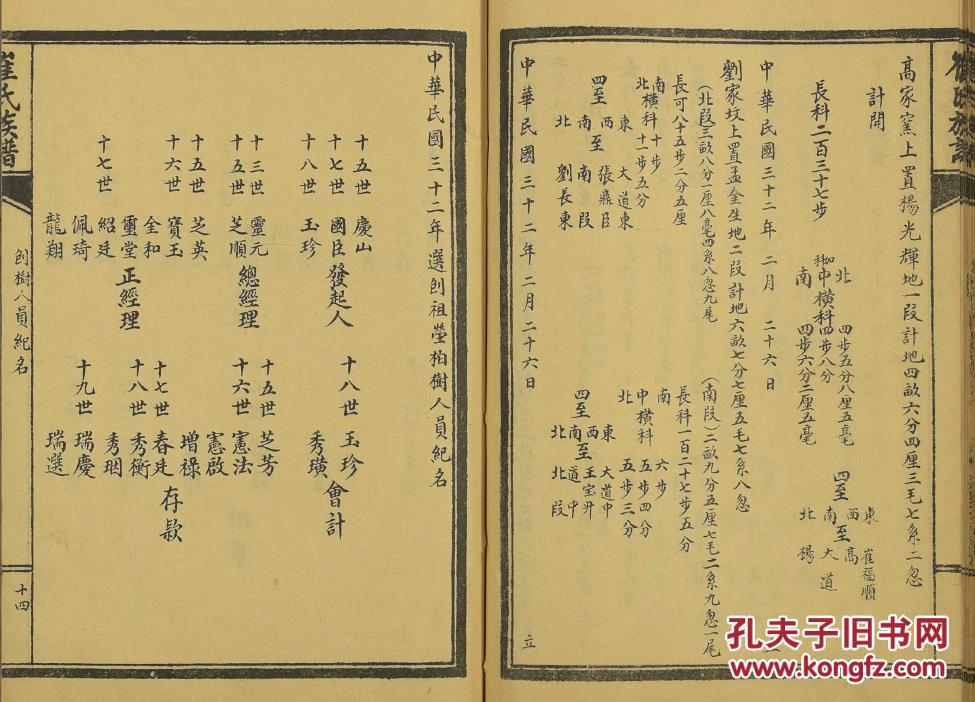 崔氏族譜
高家窯上置楊光輝地一段計地四畝六分四厘三毛七系二忽
計開
長科二百三十七步
北 四步五分八厘五毫
中橫科四步八分
南 四步六分二厘五毫
四至
東 崔福順
西 高
南 大道
北 楊
中華民國三十二年二月二十六日
劉家坟上置孟金生地二段計地六畝七分七厘五毛七系八忽
(北段三畝八分一厘八毫四系八忽九尾
(南段)二畝九分五厘七毛二系九忽一尾
長可八十五步二分五厘
南 十步
北橫科十一步五分
四至
東 大道東
西 張鼎臣
南 南段
北 劉長東
長科一百二十七步五分
南 六步
中橫科 五步四分
北 五步三分
四至
東 大道中
西 王宝升
南 道中
北 北段
中華民國三十二年二月二十六日 立
中華民國三十二年選刨祖塋柏樹人員紀名
十五世 慶山
十七世 國臣
十八世 玉珍
發起人
十八世 玉珍
秀璜
會計
十三世 靈元
十五世 芝順
總經理
十五世 芝英
十六世 寶玉
金和
璽堂
十七世 紹廷
佩琦
龍翔
正經理
十五世 芝芳
十六世 憲法
憲啟
增祿
十七世 春廷
十八世 秀衡
秀珚
十九世 瑞慶
瑞選
存款
崔氏族譜
刨樹人員紀名
十四
孔夫子旧书网
www.kongfz.com